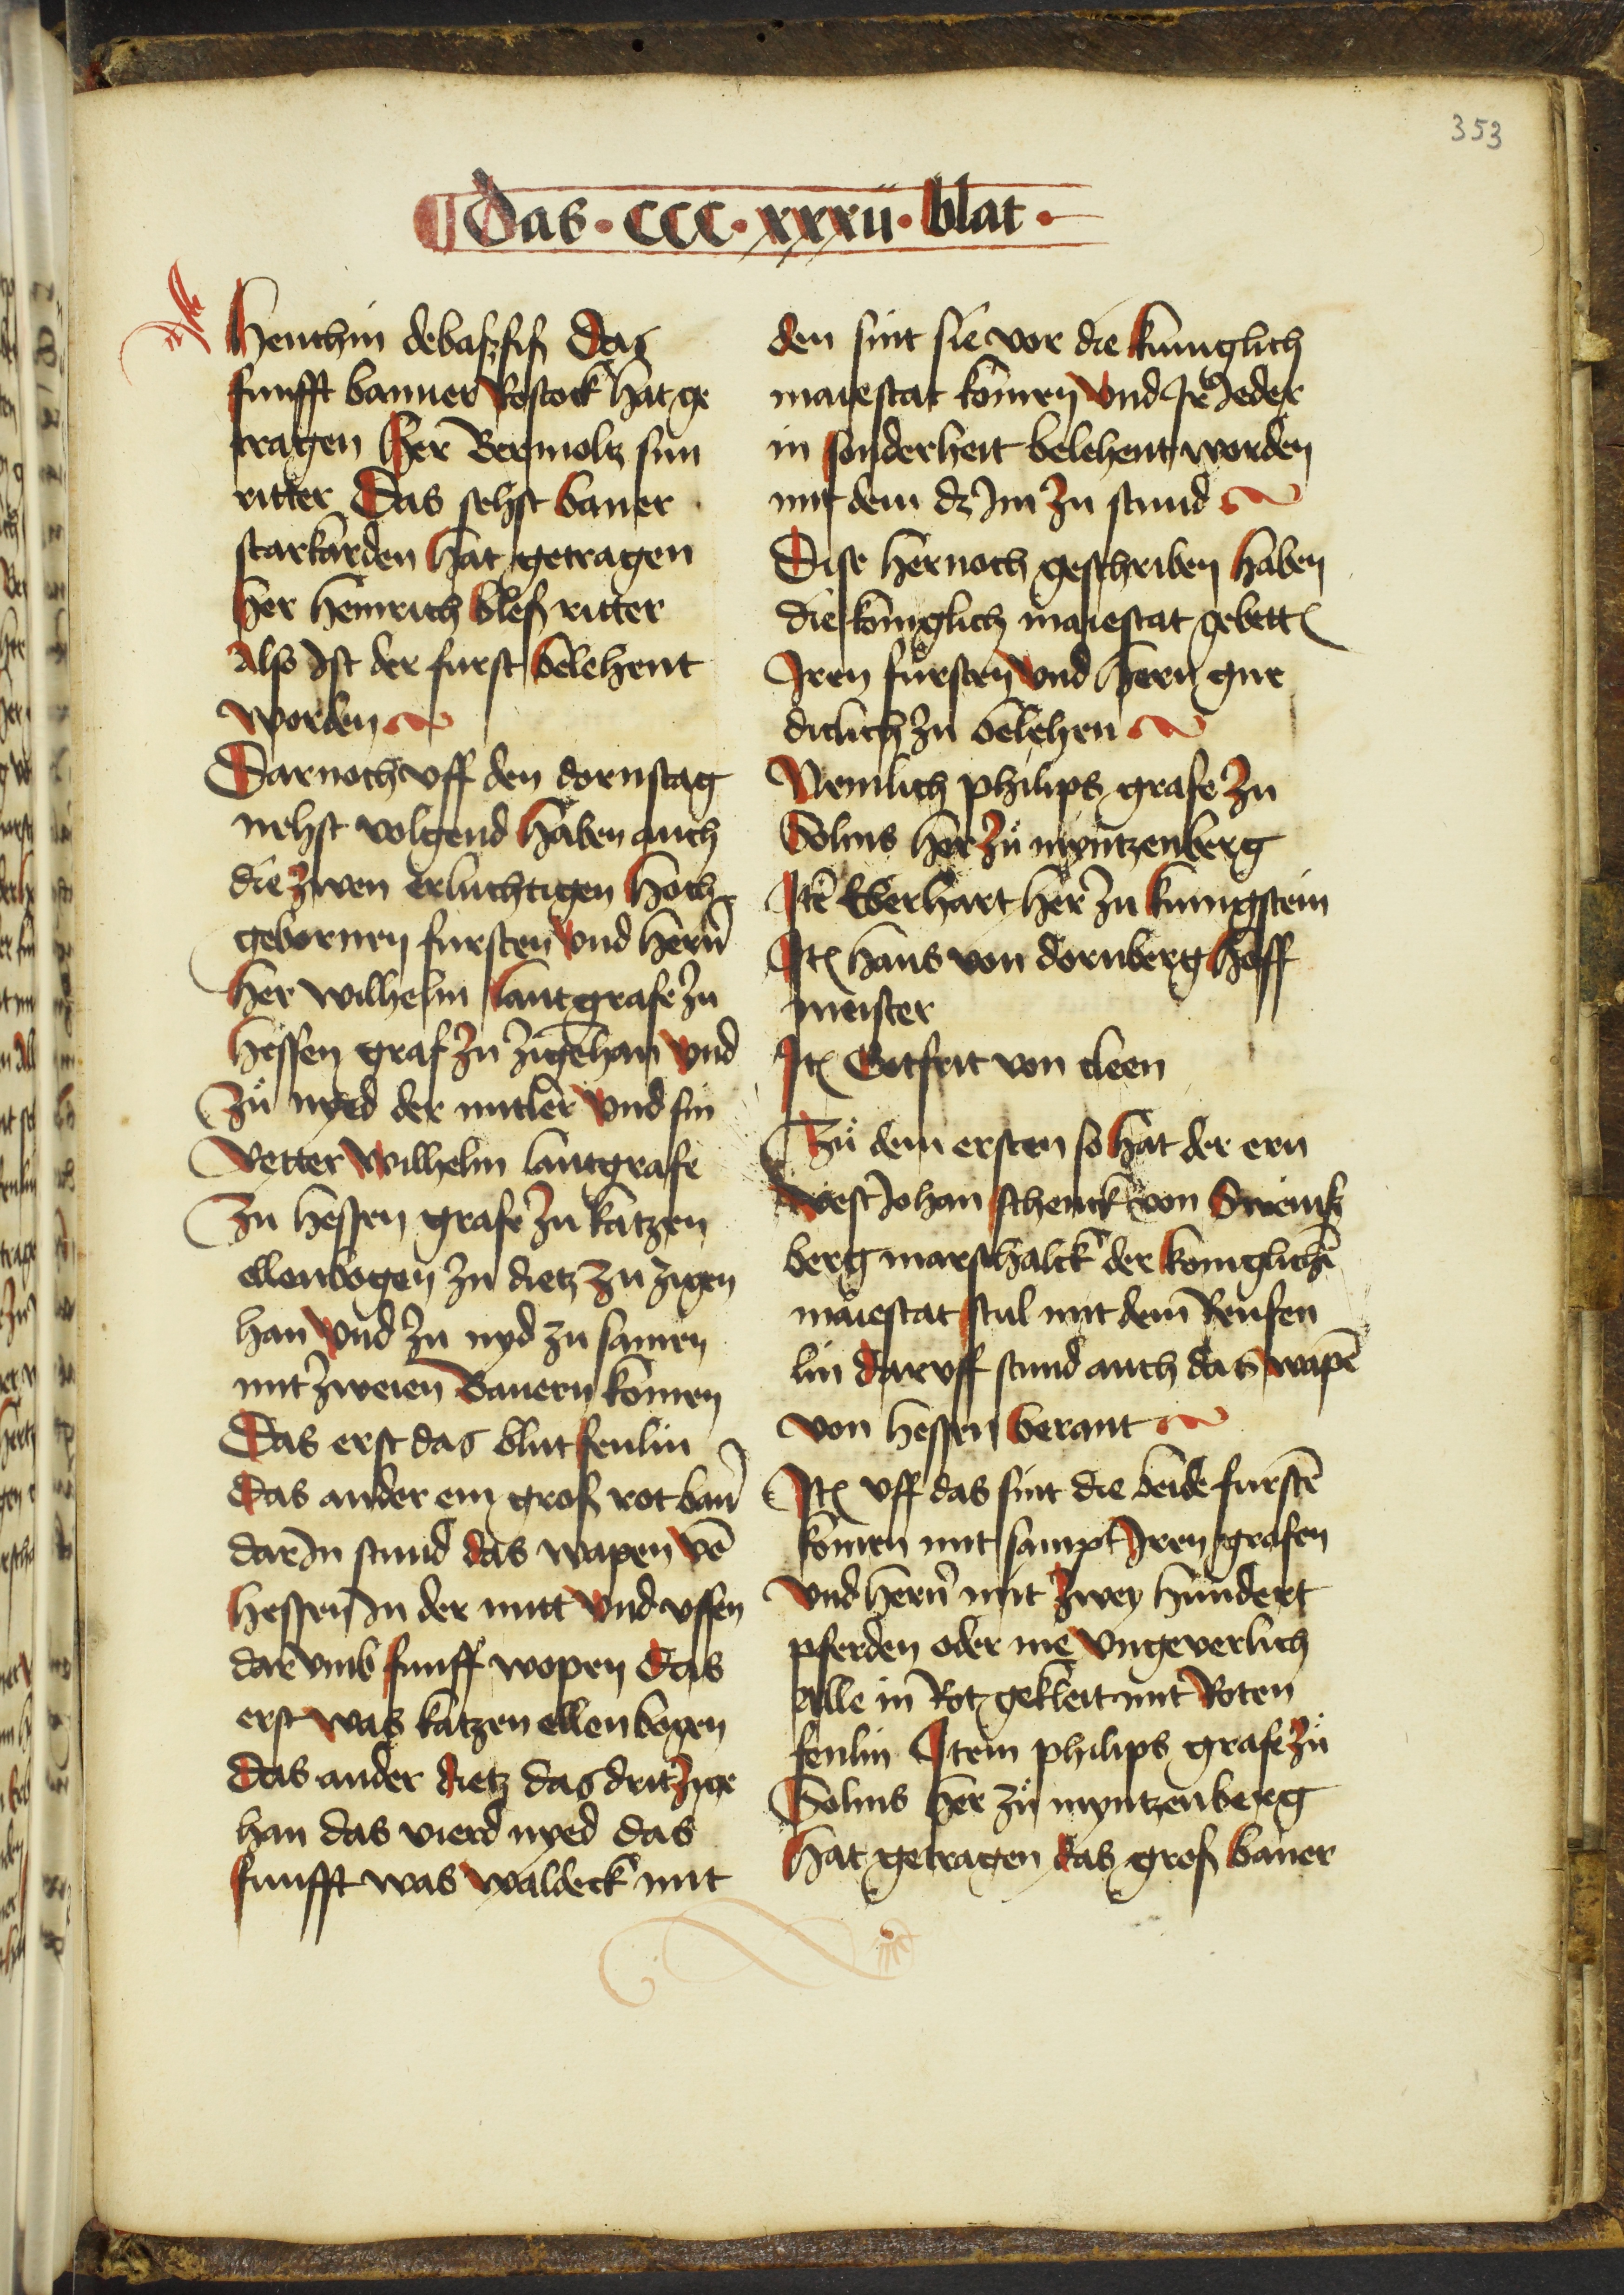 353
Das · CCC · xxxii · blat ·
Henchin debassis Das
funfft banner Rostock hat ge
tragen Her Bernolt sin
ritter Das sehst baner
starkarden hat getragen
her heinrich bless ritter
Also Ist der furst belehent
worden
Darnoch vff den dornstag
nehst volgend haben auch
die zwen erluchtigen hoch
gebornen fursten vnd hern̄
her wilhelm lantgrafe zu
hessen graf zu zigēhan vnd
zů nyed der mitler vnd sin
vetter wilhelm lantgrafe
zu hessen grafe zu katzen
ellenbogen zu dietz zu zigen
han vnd zu nyd zu samen
mit zweien Banern komen
Das erst das blut fenlin
das ander ein gross rot ban̄
dar In stund das wapen vō
hessen In der mitt vnd vssen
dar vmb funff wopen das
erst was katzen ellenbogen
das ander dietz das drit zige
han das vierd nyed das
funfft was waldeck mit
den sint sie vor die kuniglich
maiestat komen vnd Ir Jeder
in sonderheit belehent worden
mit dem dz Im zu stund
Dise hernoch geschriben haben
die koniglich maiestat gebett
Iren fursten vnd hern gne
diclich zu belehen
Nemlich philips grafe zu
Solms her zů myntzenberg
Itē Eberhart her zu kunigstein
Itē hans von dornberg hoff
meister
Itē Gotfrit von cleen
Zů dem ersten so hat der ern
vest Johan schenck von Sweinsz
berg marschalck der koniglichē
maiestat stul mit dem Renfen
lin dar vff stund auch das wapē
von hessen berant
Itē vff das sint die beide furstē
komen mit sampt Iren grafen
vnd hern̄ mit zwey hundert
pferden oder me vngeverlich
alle in Rot gekleit mit Roten
fenlin Item philips grafe zů
Solms her zů myntzenberg
hat getragen das gross baner